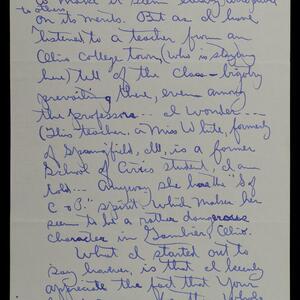 to make it seem
to others
on its merits. But as I have
listened to a teacher from an
Ohio College town, (who is staying
here) tell of the class-bigotry
prevailing there, even among
the professors... I wonder---
(This teacher, a Miss White, formerly
of Springfield, Ill., is a former
School of Civics student, I am
told... Anyway she has the "S of
C & P." spirit, which makes her
seem to be a rather dangerous
character in Gambier, Ohio.
What I started out to
say, however, is that I keenly
appreciate the fact that your